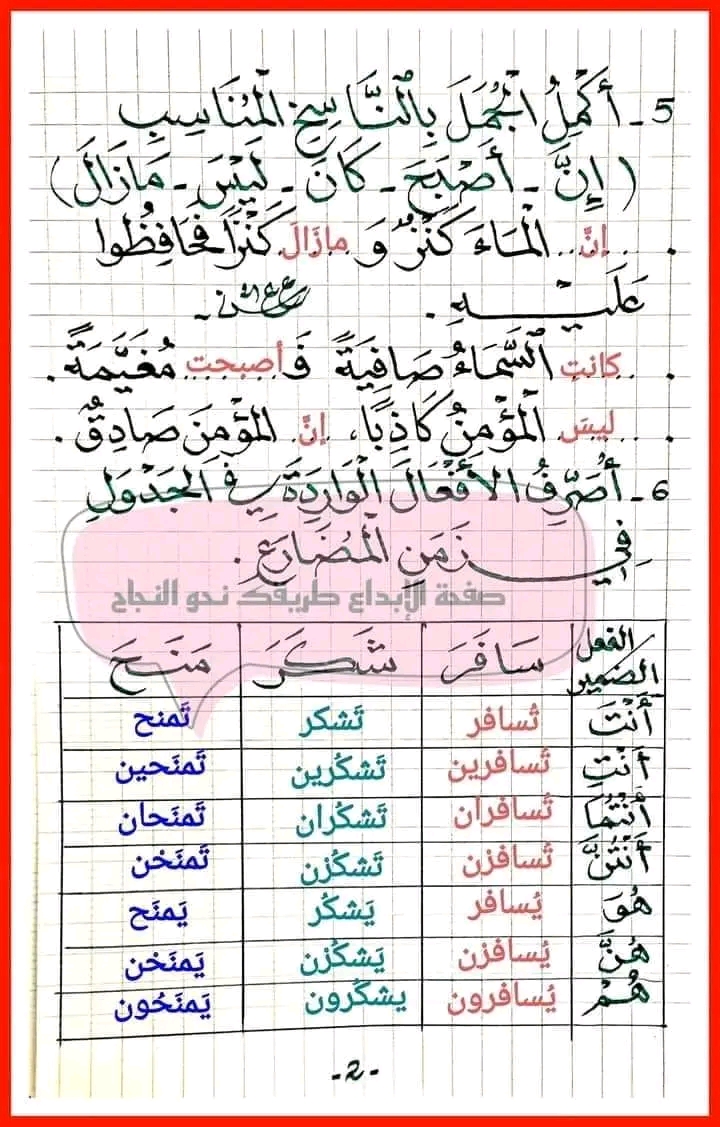 5- أَكْمِلُ الْجُمَلَ بِالنَّاسِخِ الْمُنَاسِبِ
( إِنَّ - أَصْبَحَ - كَانَ - لَيْسَ - مَازَالَ )
. ...إنَّ... الْمَاءَ كَنْزٌ وَ مازالَ كَنْزًا فَحَافِظُوا
عَلَيْهِ .
. ...كانتِ السَّمَاءُ صَافِيَةً فَـأصبحت مُغَيَّمَةً .
. ...ليسَ... الْمُؤْمِنُ كَاذِبًا، إنَّ.. الْمُؤْمِنَ صَادِقٌ .
6- أُصَرِّفُ الأَفْعَالَ الْوَارِدَةَ فِي الْجَدْوَلِ
فِي زَمَنِ الْمُضَارِعِ .
صفحة الإبداع طريقك نحو النجاح
الفعل الضمير سَافَرَ شَكَرَ مَنَحَ
أَنْتَ تُسافر تَشكر تَمنح
أَنْتِ تُسافرين تَشكُرين تَمنَحين
أَنْتُمَا تُسافران تَشكُران تَمنَحان
أَنْتُنَّ تُسافزن تَشكُزن تَمنَحْن
هُوَ يُسافر يَشكُر يَمنَح
هُنَّ يُسافزن يَشكُزن يَمنَحْن
هُمْ يُسافرون يشكُرون يَمنَحُون
-2-